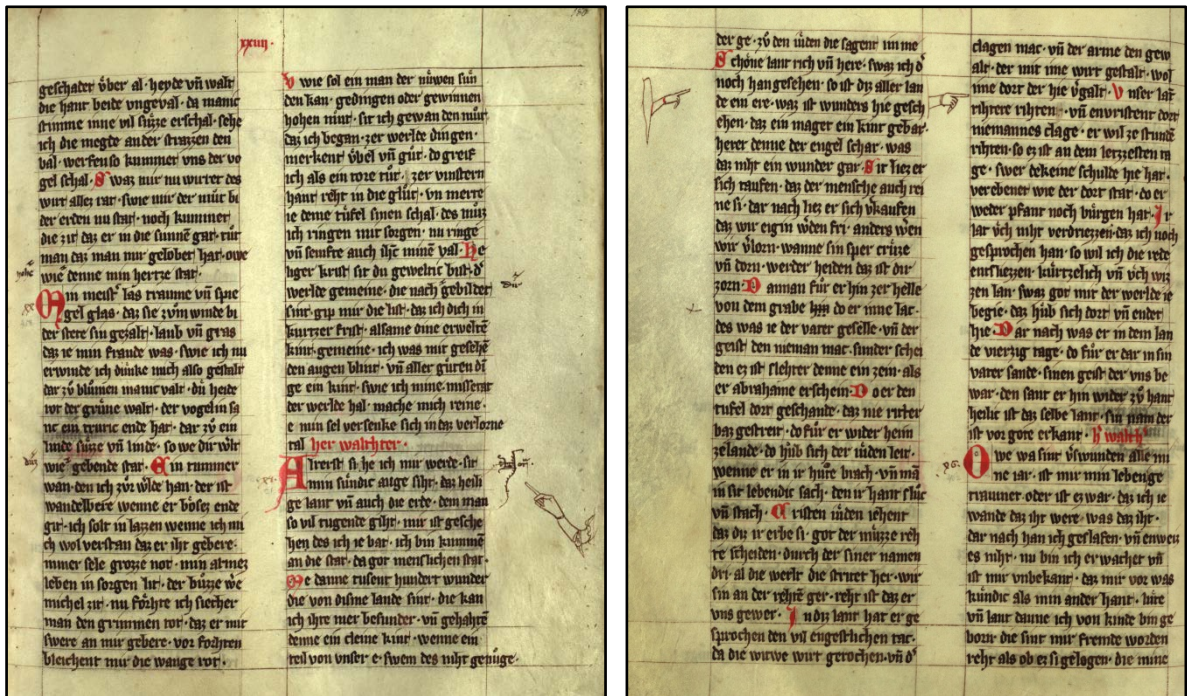 xxiiij.
geschadet v̊ber al · heyde vn̄ walt
die hant beide vngeval · da manic
stimme inne vil sůzze erschal · sehe
ich die megde an der strazzen den
bal · werfen so kummet vns der vo
gel schal · Swaz mir nu wirret des
wirt alles rat · swie mir der můt bi
der erden nu stat · noch kummet
die zit daz er in die sunnē gat · tůt
man daz man mir gelobet hat · owe
wie denne min hertze stat ·
Min meist' las traume vn̄ spie
gel glas · daz sie zům winde bi
der stete sin gezalt · laub vn̄ gras
daz ie min fraude was · swie ich nu
erwinde ich dunke mich also gestalt
dar zů blůmen manicvalt · dů heide
rot der grůne walt · der vogelin sa
nc ein truric ende hat · dar zů ein
linde sůzze vn̄ linde · so we dir ẘlt
wie gebende stat · Ein tummer
wan · den ich zůr ẘlde han · der ist
wandelbere wenne er bősez ende
git · ich solt in lazzen wenne ich mi
ch wol verstan daz er iht gebere ·
miner sele grozze not · min armez
leben in sorgen lit · der bůzze we
michel zit · nu fỏrhte ich siecher
man den grimmen tot · daz er mit
swere an mir gebere · vor fỏrhten
bleichent mir die wange rot ·
Wie sol ein man der nůwen sůn
den kan · gedingen oder gewinnen
hohen můt · sit ich gewan den můt
daz ich began · zer werlde dingen ·
merkent v̊bel vn̄ gůt · do greif
ich als ein tore tůt · zer vinstern
hant reht in die glůt · vn̄ merre
ie deme tůfel sinen schal · des můz
ich ringen mit sorgen · nu ringe
vn̄ senfte auch ihc minē val · He
liger krist sit du geweltic bist · d'
werlde gemeine · die nach gebildet
sint · gip mir die list · daz ich dich in
kurtzer frist · alsame dine erweltē
kint · gemeine · ich was mit gesehē
den augen blint · vn̄ aller gůten di
ge ein kint · swie ich mine missetat
der werlde hal · mache mich reine ·
e min sel versenke sich in daz verlorne
tal her walthter ·
Alrerst si he ich mir werde · sit
min sůndic auge siht · daz heili
ge lant vn̄ auch die erde · dem man
so vil tugende giht · mir ist gesche
hen des ich ie bat · ich bin kummē
an die stat · da got menslichen trat ·
Me danne tusent hundert wunder
die von disme lande sint · die kan
ich ihte mer besunder · vn̄ gehahtē
denne ein cleine kint · wenne ein
teil von vnser e · swem des niht genůge ·
der ge · zů den iůden die sagent im me
Schỏne lant rich vn̄ here · swaz ich d'
noch han gesehen · so ist dů aller lan
de ein ere · waz ist wunders hie gesch
ehen · daz ein maget ein kint gebar ·
herer denne der engel schar · was
daz niht ein wunder gar · Sit liez er
sich taufen · daz der mensche auch rei
ne si · dar nach liez er sich v'kaufen
daz wir eigin w'den fri · anders w'en
wir v'lorn · wanne sin sper crůze
vn̄ dorn · we der heiden daz ist dir
zorn · Dannan fůr er hin zer helle
von dem grabe do er inne lac ·
des was ie der vater geselle · vn̄ der
geist den nieman mac · sunder schei
den ez ist slehter denne ein zein · als
er abrahame erschein · Do er den
tůfel dort geschande · daz nie ritter
baz gestreit · do fůr er wider heim
zelande · do hůb sich der iůden leit ·
wenne er in ir hůte brach · vn̄ mā
in sit lebendic sach · den ir hant sluc
vn̄ stach · Cristen iůden iehent
daz dit ir erbe si · got der můzze reh
te scheiden · durch der siner namen
dri · al die werlt die stritet her · wir
sin an der rehtē ger · reht ist daz er
vns gewer · In diz lant hat er ge
sprochen den vil engestlichen tac ·
da die witwe wirt gerochen · vn̄ d'
clagen mac · vn̄ der arme den gew
alt · der mit ime wirt gestalt · wol
ime dort der hie v'galt · Vnser lāt
rihtere rihten · vn̄ envristent dort
niemannes clage · er wil ze stunde
rihten · so ez ist an dem letzzesten ta
ge · swer dekeine schulde hie hat ·
verebenet wie der dort stat · do er
weder pfant noch bůrgen hat · Ir
lat v̊ch niht verdriezzen · daz ich noch
gesprochen han · so wil ich die rede
entsliezzen · kurtzelich vn̄ v̊ch wiz
zen lan · swaz got mit der werlde ie
begie · daz hůb sich dort vn̄ endet
hie · Dar nach was er in dem lan
de vierzig tage · do fůr er dar in sin
vater sande · sinen geist der vns be
war · den sant er hin wider zů hant
heilic ist daz selbe lant · sin nam der
ist vor gote erkant · h' walth'
Owe wa sint v'swunden alle mi
ne iar · ist mir min lebenge
traumet oder ist ez war · daz ich ie
wande daz iht were · was daz iht ·
dar nach han ich geslafen · vn̄ enweiz
es niht · nu bin ich erwachet vn̄
ist mir vnbekant · daz mir vor was
kůndic als min ander hant · lute
vn̄ lant danne ich von kinde bin ge
born · die sint mir fremde worden
reht als ob ez si gelogen · die mine